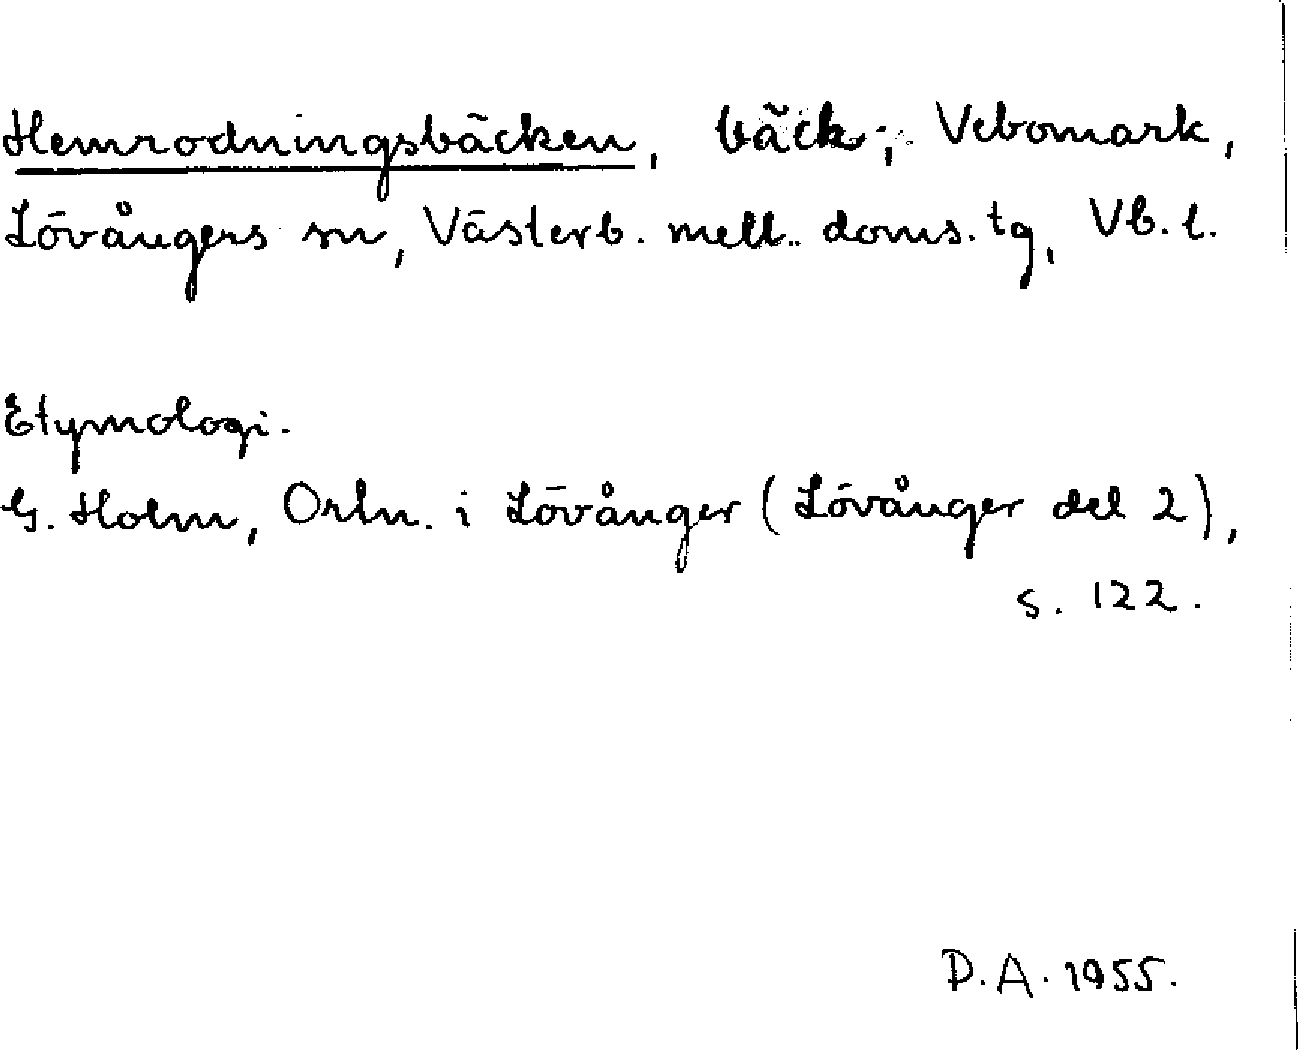 Hemrodningsbäcken, bäck; Vebomark,
Lövångers sn, Västerb. mell. doms. tg, Vb. l.
Etymologi.
G. Holm, Ortn. i Lövånger (Lövånger del 2),
s. 122.
D.A. 1955.